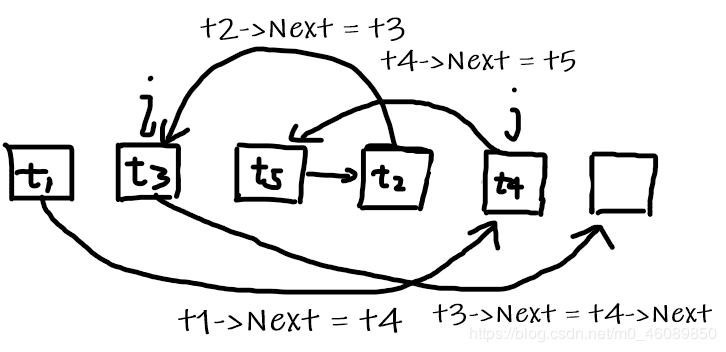 t2->Next = t3
t4->Next = t5
i
j
t1
t3
t5
t2
t4
t1->Next = t4
t3->Next = t4->Next
https://blog.csdn.net/m0_46089850